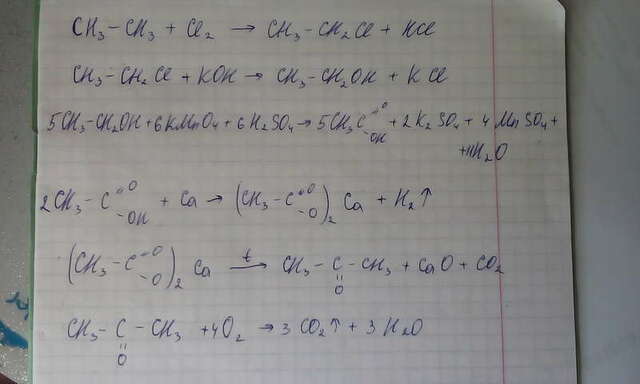 CH₃-CH₃ + Cl₂ → CH₃-CH₂Cl + HCl
CH₃-CH₂Cl + KOH → CH₃-CH₂OH + KCl
5CH₃-CH₂OH + 6KMnO₄ + 6H₂SO₄ → 5CH₃C=O-OH + 2K₂SO₄ + 4MnSO₄ +
+11H₂O
2CH₃-C=O-OH + Ca → (CH₃-C=O-O)₂Ca + H₂↑
(CH₃-C=O-O)₂Ca t→ CH₃-C-CH₃ + CaO + CO₂
=O
CH₃-C-CH₃ + 4O₂ → 3CO₂↑ + 3H₂O
=O